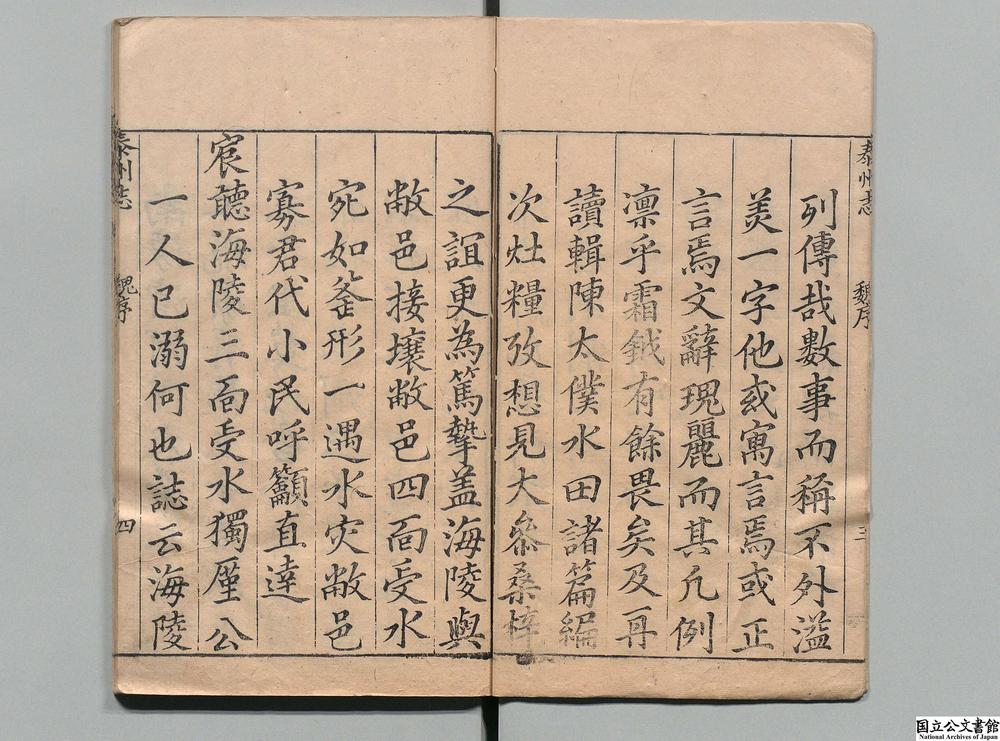 泰州志 魏序 三
列傳哉數事而稱不外溢
美一字他或寓言焉或正
言焉文辭瑰麗而其凡例
凛乎霜鉞有餘畏矣及再
讀輯陳太僕水田諸篇編
次灶糧攷想見大叅桑梓
之誼更為篤摯盖海陵與
敝邑接壤敝邑四面受水
宛如釜形一遇水灾敝邑
寡君代小民呼籲直達
宸聽海陵三面受水獨厪公
一人已溺何也誌云海陵
泰州志 魏序 四
国立公文書館
National Archives of Japan